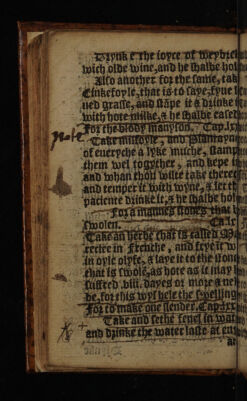 Drynk e the ioyce of weybred
wich olde wine, and he shalbe hol
Also another for the same, tak
Cinkefoyle, that is to saye, fyue le
ued grasse, and stape it & drinke it
with hote milke, & he shalbe eased
For the blody manyson. Cap. lxx
note
Take mintoyle, and
of eueryche a lyke muche, stamp
them wel togyther, and kepe it
and whan thou wilte take therof
and temper it with wyne, & let the
paciente drinke it, & he shalbe hol
For a mannes stones that be
swolen. Ca. lx
Take an herbe that is called
in Frenche, and frye it
in oyle olyfe, & laye it to the stone
that is swole, as hote as it may be
suffred .viii. dayes or more & nede
be, for this wyl hele the swellyng
For to make one slender. Cap. lxx
Take and sethe fenel in wat
and drinke the water laste at eue